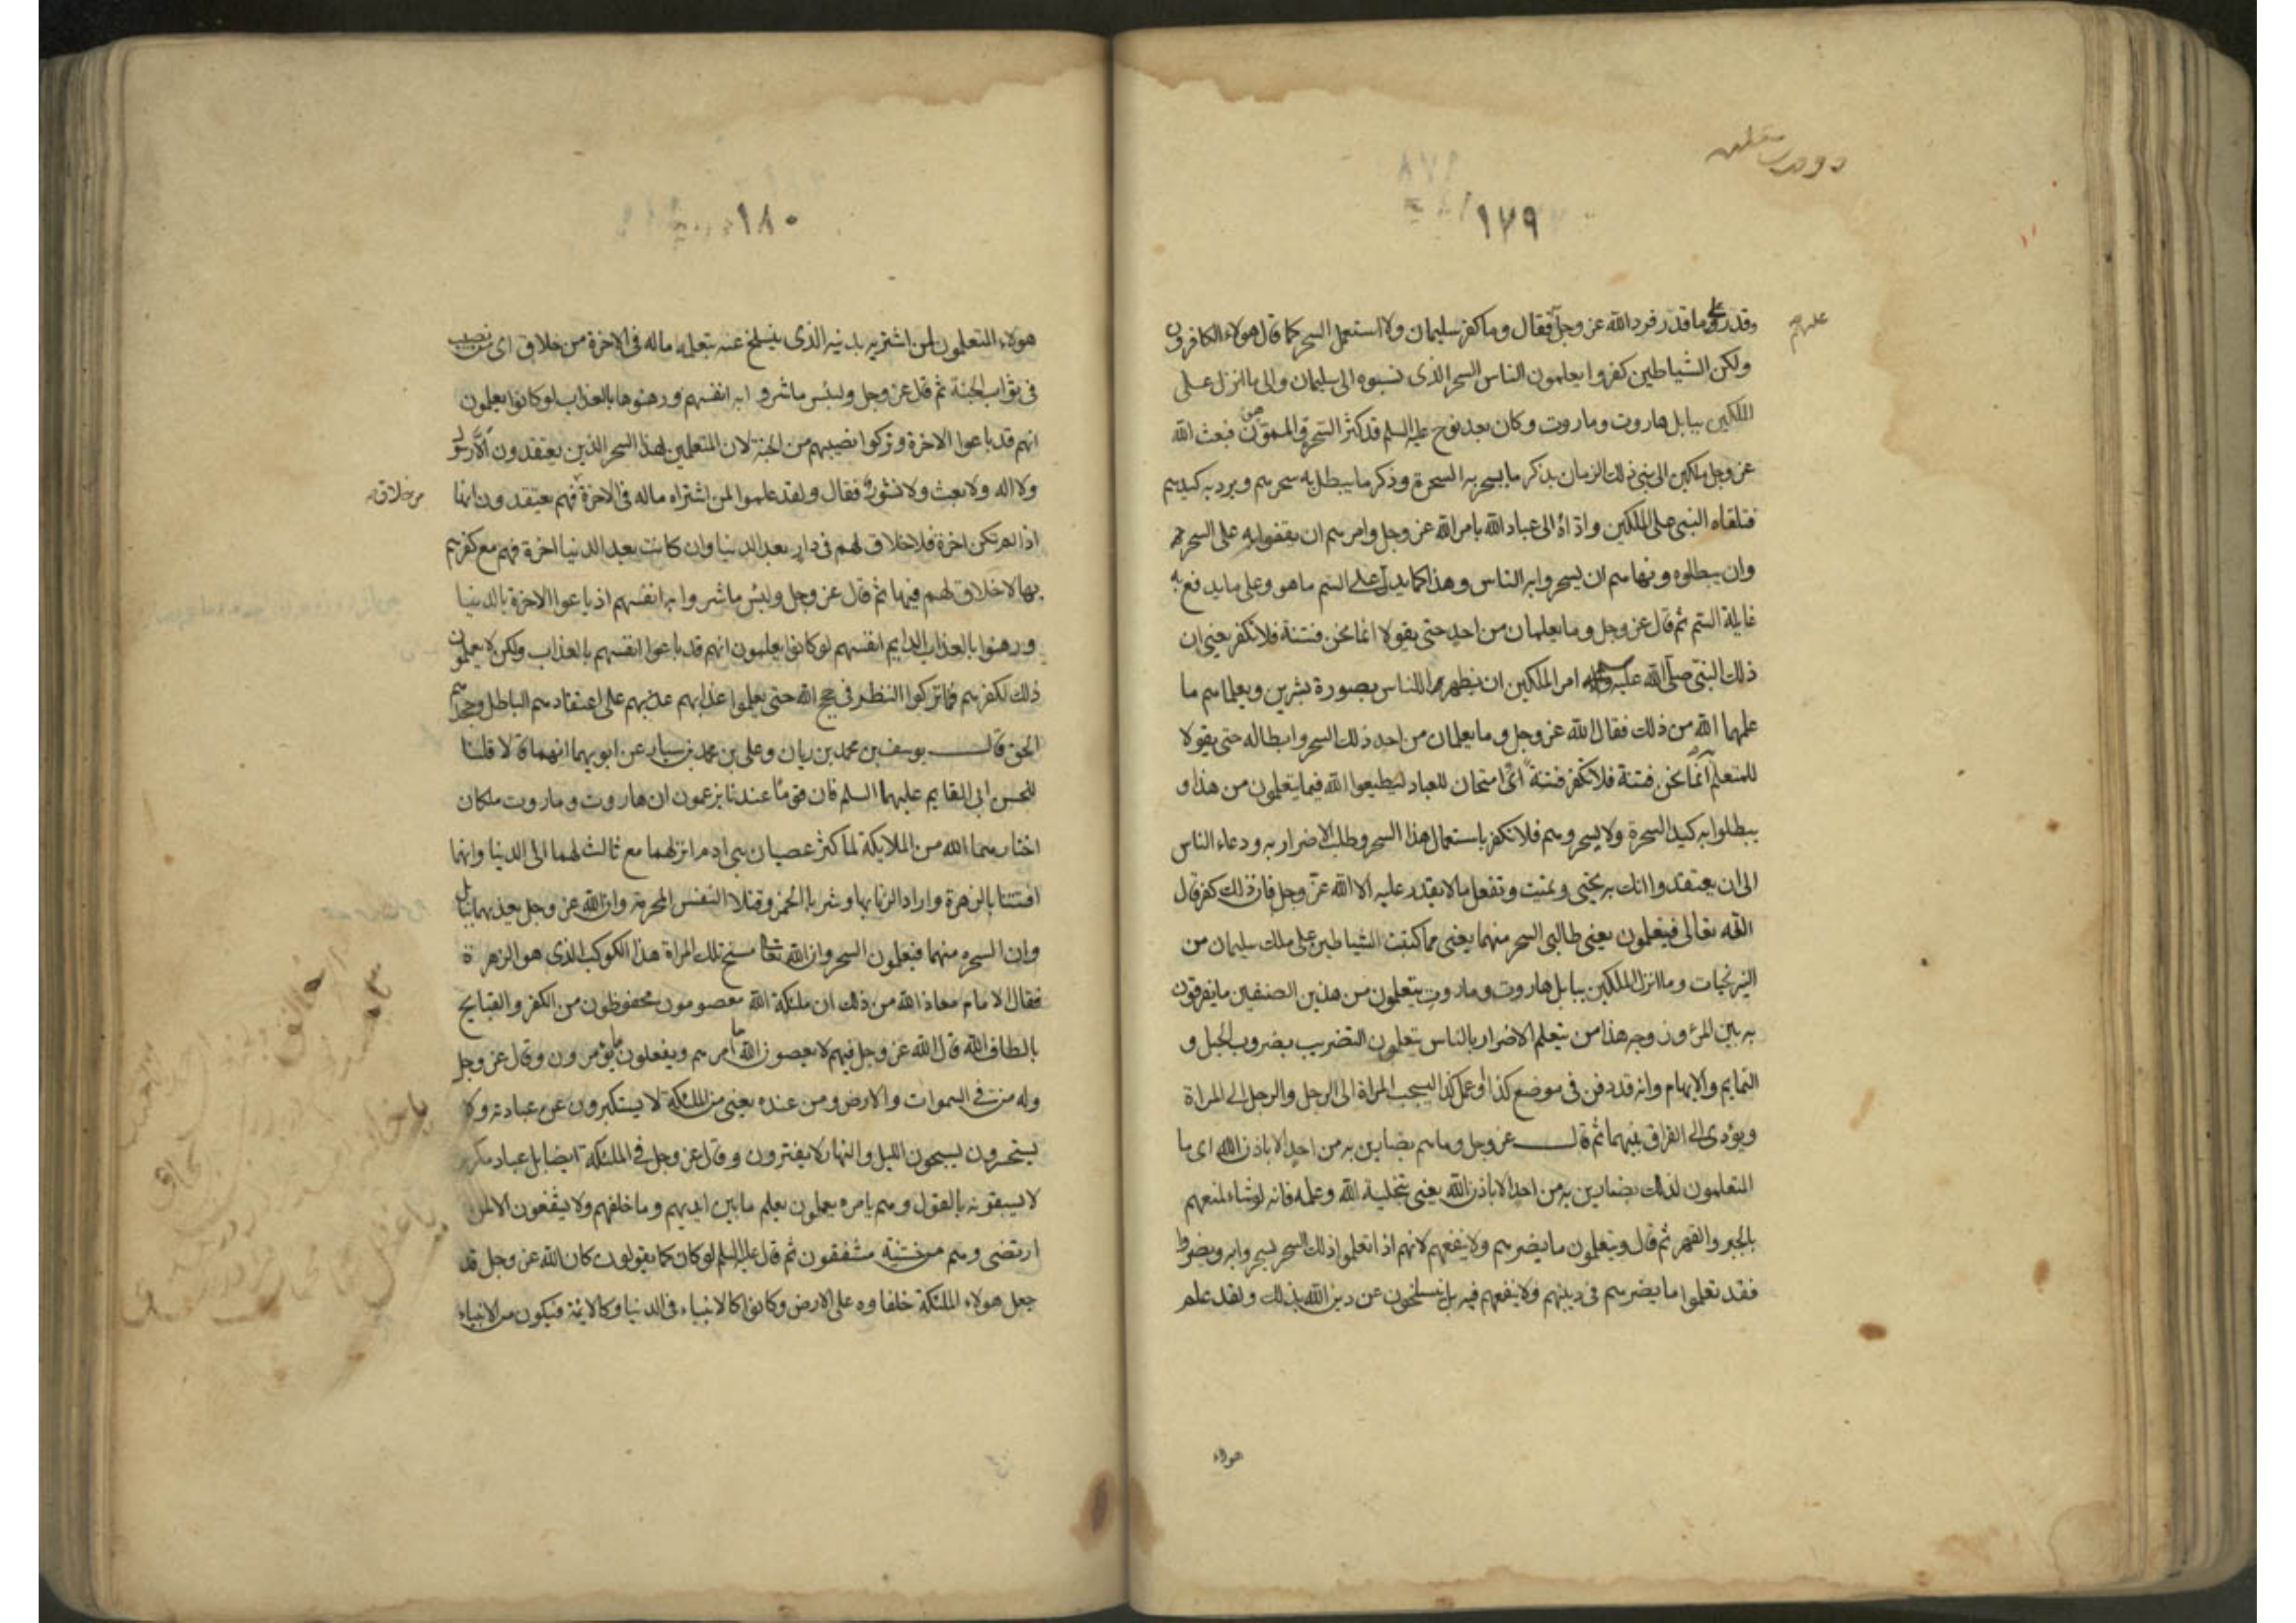 ١٧٩
وقدر على ما قدر فرد الله عز وجل فقال وما كفر سليمان ولا استعمل السحر كما قال هولاء الكافرون
عليهم
ولكن الشياطين كفروا يعلمون الناس السحر الذى نسبوه الى سليمان والى ما انزل على
الملكين ببابل هاروت وماروت وكان بعد نوح عليه السلم قد كثر السحرة والمموهون فبعث الله
عز وجل ملكين الى نبى ذلك الزمان بذكر ما يسحر به السحرة وذكر ما يبطل به سحرهم ويرد به كيدهم
فتلقاه النبى على الملكين واداه الى عباد الله بامر الله عز وجل وامرهم ان يقفوا به على السحر
وان يبطلوه ونهاهم ان يسحروا به الناس وهذا كما يدل على السم ما هو وعلى ما يدفع به
غايلة السم ثم قال عز وجل وما يعلمان من احد حتى يقولا انما نحن فتنة فلا تكفر يعنى ان
ذلك النبى صلى الله عليه امر الملكين ان يظهرا للناس بصورة بشرين ويعلماهم ما
علمهما الله من ذلك فقال الله عز وجل وما يعلمان من احد ذلك السحر وابطاله حتى يقولا
للمتعلم انما نحن فتنة فلا تكفر فتنة اى امتحان للعباد ليطيعوا الله فيما يتعلمون من هذا و
يبطلوا به كيد السحرة ولا يسحروهم فلا تكفر باستعمال هذا السحر وطلب الاضرار به ودعاء الناس
الى ان يعتقدوا انك به تحيى وتميت وتفعل ما لا يقدر عليه الا الله عز وجل فان ذلك كفر قال
الله تعالى فيتعلمون يعنى طالبى السحر منهما يعنى مما كتبت الشياطين على ملك سليمان من
النيرنجات وما انزل الملكين ببابل هاروت وماروت يتعلمون من هذين الصنفين ما يفرقون
به بين المرء وزوجه هذا من يتعلم الاضرار بالناس يتعلمون التضريب بضروب الحيل و
التمايم والايهام وانه قد دفن فى موضع كذا او عمل كذا ليحبب المراة الى الرجل والرجل الى المراة
ويؤدى الى الفراق بينهما ثم قال عز وجل وما هم بضارين به من احد الا باذن الله اى ما
المتعلمون لذلك بضارين به من احد الا باذن الله يعنى بتخلية الله وعلمه فانه لو شاء لمنعهم
بالجبر والقهر ثم قال ويتعلمون ما يضرهم ولا ينفعهم لانهم اذا تعلموا ذلك السحر ليسحروا به ويضروا
فقد تعلموا ما يضرهم فى دينهم ولا ينفعهم فيه بل ينسلخون عن دين الله بذلك ولقد علم
هولاء
١٨٠
هولاء المتعلمون لمن اشتريه بدينه الذى ينسلخ عنه بتعلمه ماله فى الاخرة من خلاق اى من نصيب
فى ثواب الجنة ثم قال عز وجل ولبئس ما شروا به انفسهم ورهنوها بالعذاب لو كانوا يعلمون
انهم قد باعوا الاخرة وتركوا نصيبهم من الجنة لان المتعلمين لهذا السحر الذين يعتقدون ان لا رسول
ولا اله ولا بعث ولا نشور فقال ولقد علموا لمن اشتراه ماله فى الاخرة فهم يعتقدون انها
من خلاق
اذا لم تكن اخرة فلا خلاق لهم فى دار بعد الدنيا وان كانت بعد الدنيا اخرة فهم مع كفرهم
بها لا خلاق لهم فيها ثم قال عز وجل ولبئس ما شروا به انفسهم اذ باعوا الاخرة بالدنيا
ورهنوا بالعذاب الدايم انفسهم لو كانوا يعلمون انهم قد باعوا انفسهم بالعذاب ولكن لا يعلمون
ذلك لكفرهم فما تركوا النظر فى حجج الله حتى يعلموا عذابهم عذبهم على اعتقادهم الباطل وجحدهم
الحق قال يوسف بن محمد بن زيان وعلى بن محمد بن سيار عن ابويهما انهما قالا قلنا
للحسن ابى القايم عليهما السلم فان قوما عندنا يزعمون ان هاروت وماروت ملكان
اختارهما الله من الملايكة لما كثر عصيان بنى ادم انزلهما مع ثالث لهما الى الدنيا وانهما
افتتنا بالزهرة وارادا الزنا بها وشربا الخمر وقتلا النفس المحرمة وان الله عز وجل يعذبهما ببابل
وان السحره منهما فيعلمون السحر وان الله تعا مسخ تلك المراة هذا الكوكب الذى هو الزهرة
فقال الامام معاذ الله من ذلك ان ملئكة الله معصومون محفوظون من الكفر والقبايح
بالطاف الله قال الله عز وجل فيهم لا يعصون الله ما امرهم ويفعلون ما يؤمرون وقال عز وجل
وله من فى السموات والارض ومن عنده يعنى من الملئكة لا يستكبرون عن عبادته ولا
يستحسرون يسبحون الليل والنهار لا يفترون وقال عز وجل فى الملئكة ايضا بل عباد مكرمون
لا يسبقونه بالقول وهم بامره يعملون يعلم ما بين ايديهم وما خلفهم ولا يشفعون الا لمن
ارتضى وهم من خشيته مشفقون ثم قال عليه السلم لو كان كما يقولون كان الله عز وجل قد
جعل هولاء الملئكة خلفاوه على الارض وكانوا كالانبياء فى الدنيا وكالائمة فيكون من الانبياء